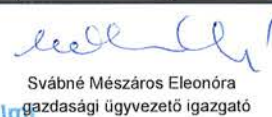 Svábné Mészáros Eleonóra
gazdasági ügyvezető igazgató